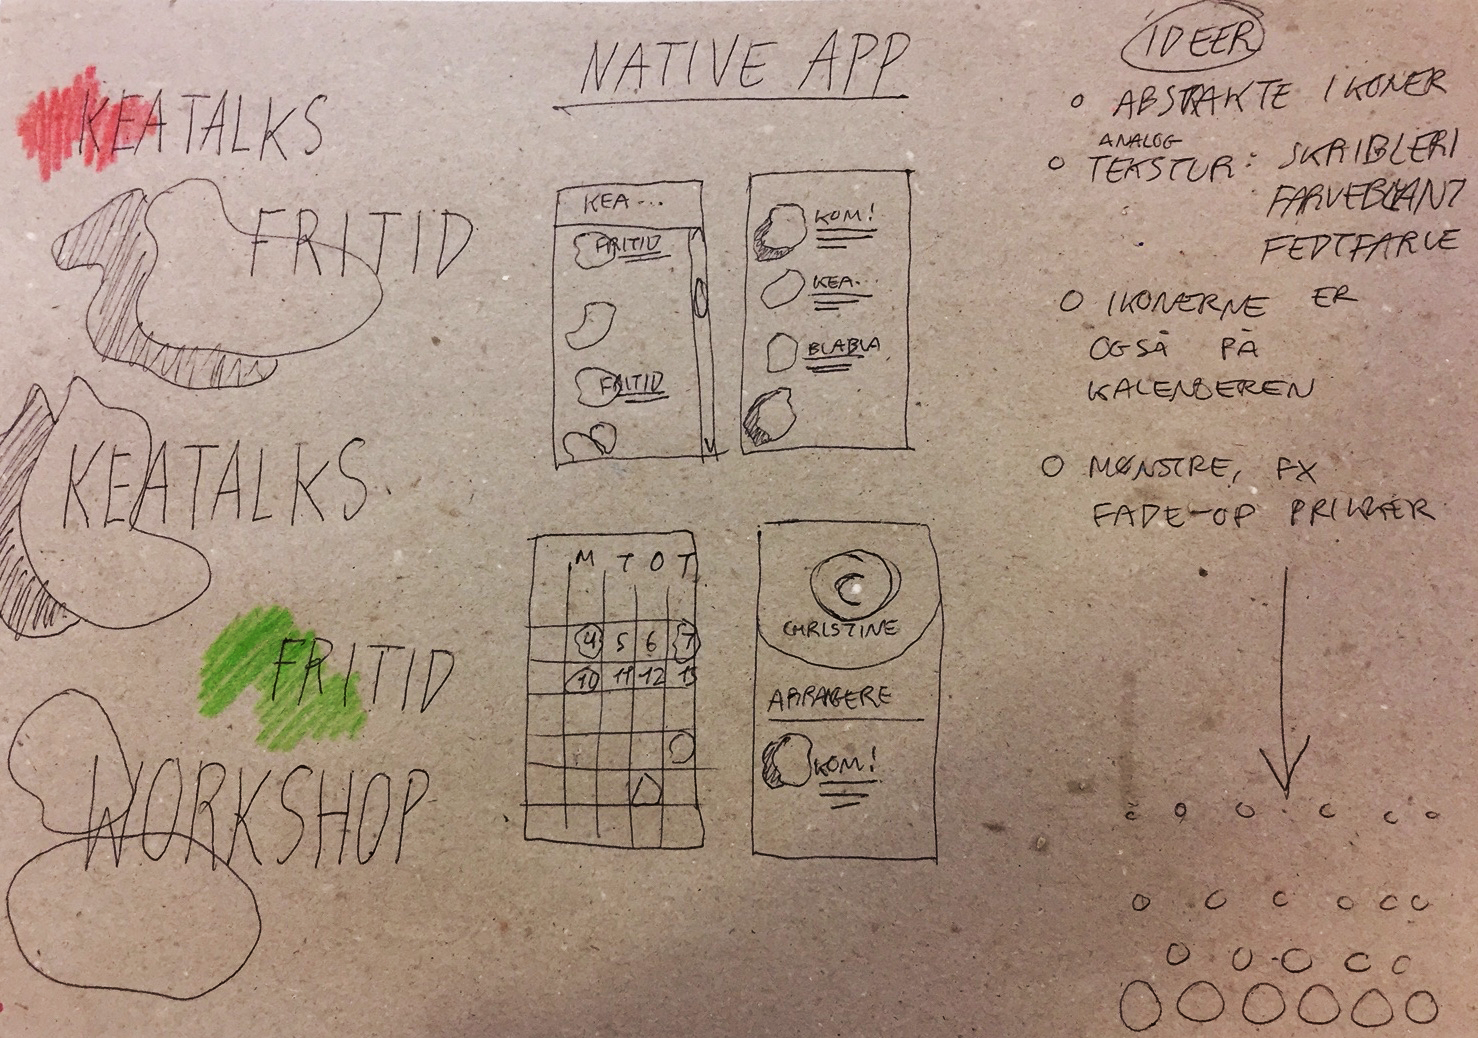 NATIVE APP
KEATALKS
FRITID
KEATALKS
FRITID
WORKSHOP
KEA...
FRITID
FRITID
KOM!
KEA...
BLABLA
M T O T
4 5 6 7
10 11 12 13
C
CHRISTINE
KOM!
IDEER
ABSTRAKTE IKONER
ANALOG
TEKSTUR: SKRIBLERI
FARVEBLYANT
FEDTFARVE
IKONERNE ER
OGSÅ PÅ
KALENDEREN
MØNSTRE, FX
FADE-OP PRIKKER